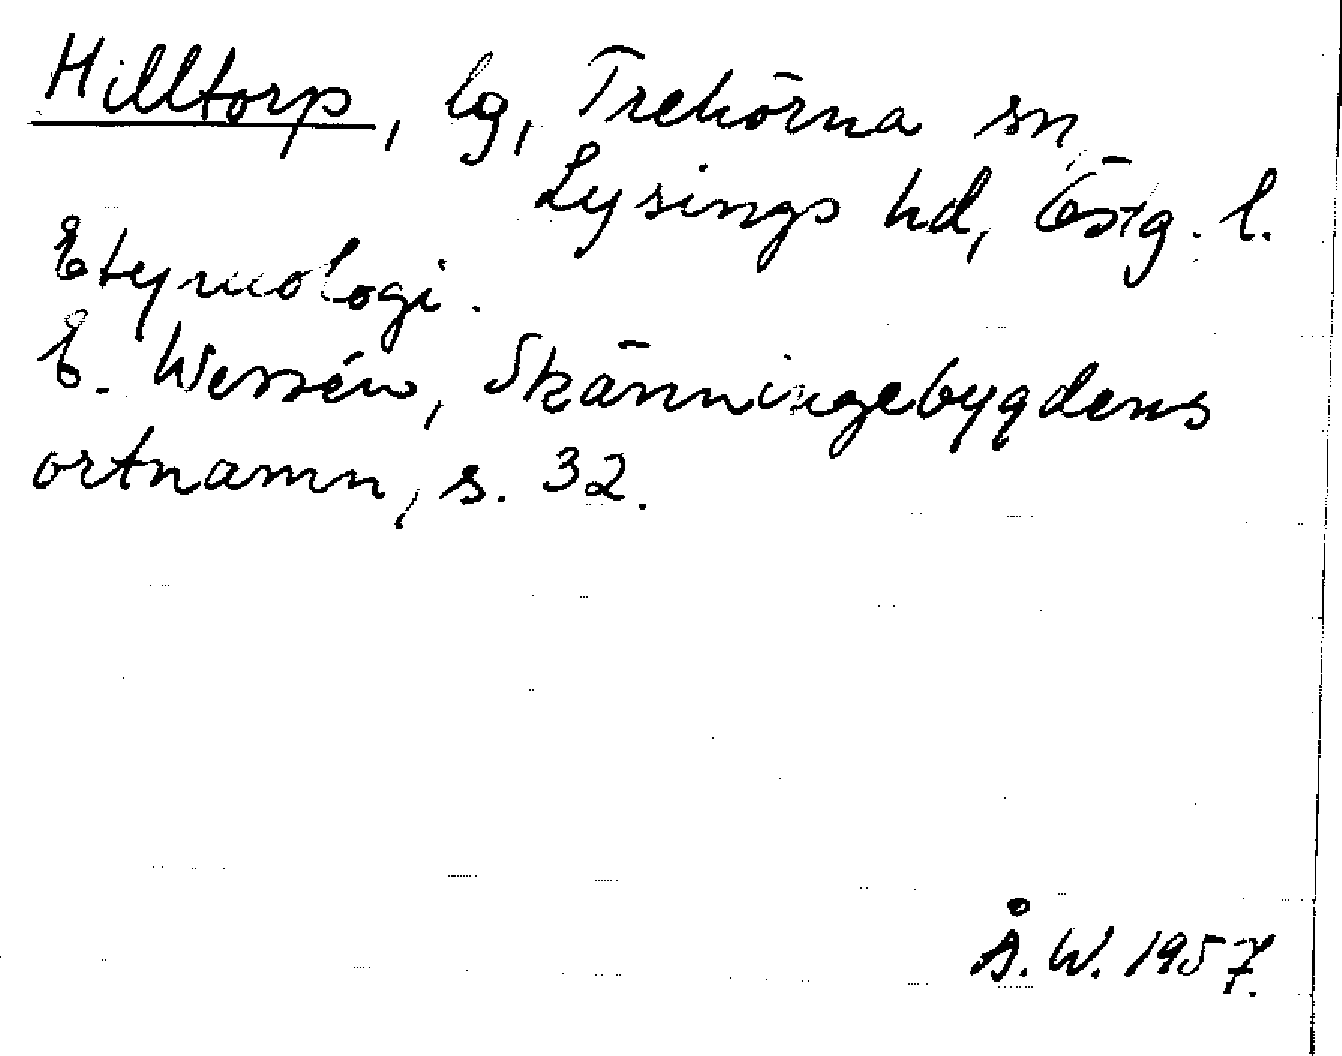 Hilltorp, lg, Trehörna sn
Lysings hd, Östg. l.
Etymologi.
E. Wessén, Skänningebygdens
ortnamn, s. 32.
Å. W. 1957.